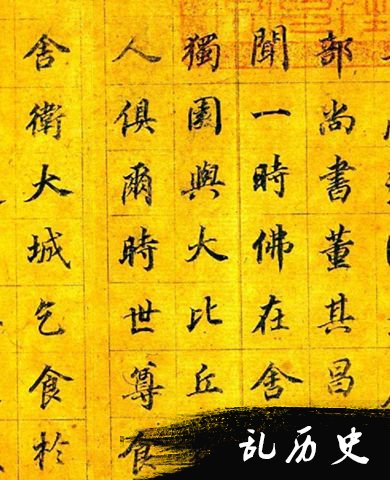 部尚書董其昌
聞一時佛在舍
獨園與大比丘
人俱爾時世尊食
舍衛大城乞食於
乱历史